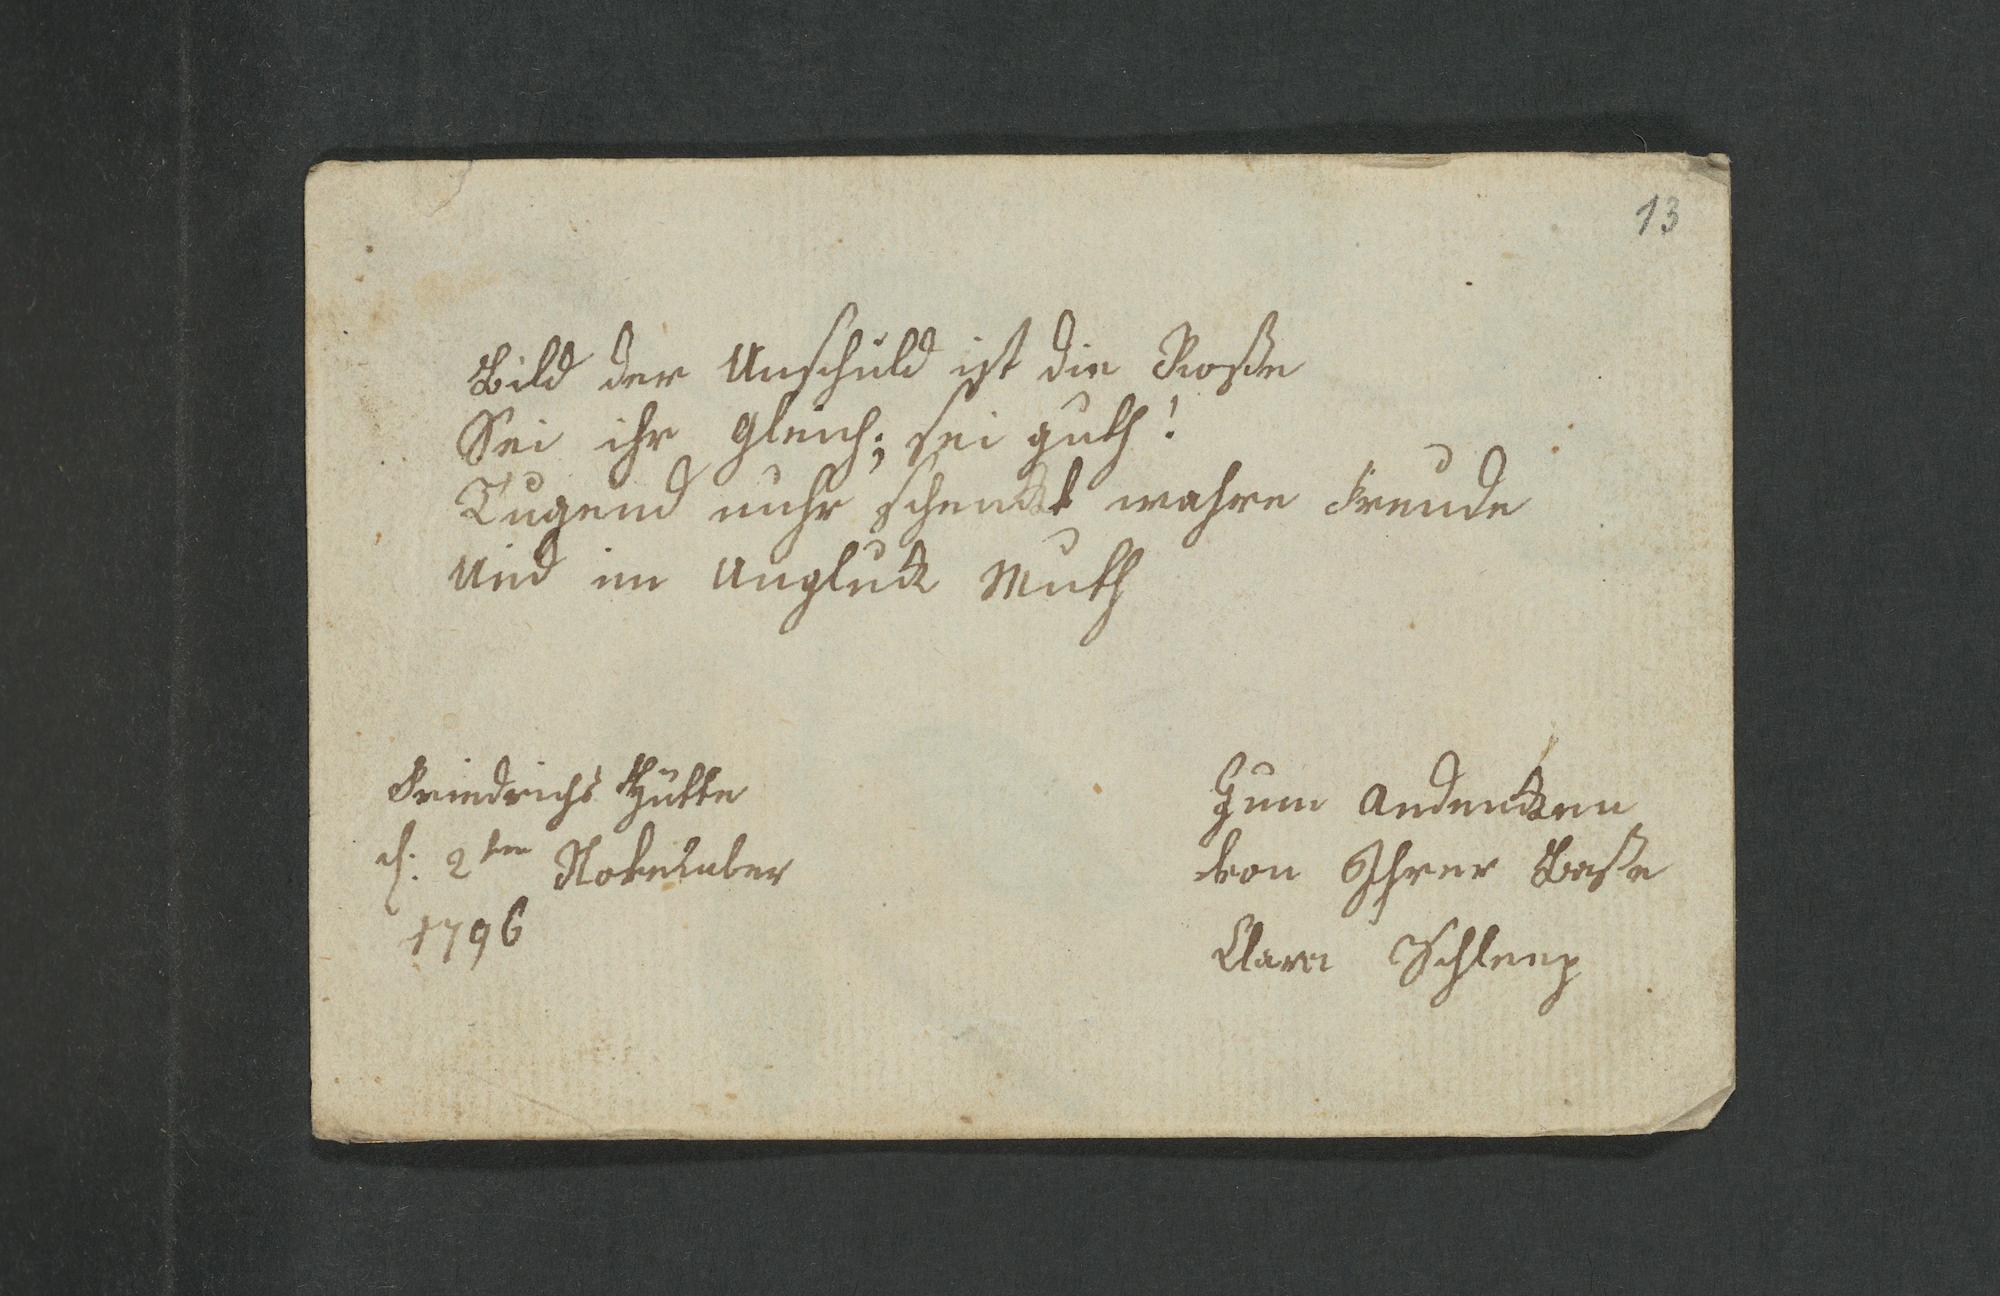 13
Bild der Unschuld ist die Roße
Sei ihr Gleich; sei guth!
Tugend nuhr schenckt wahre Freude
Und im Ungluck Muth
Friedrichs Hütte
d. 2ten November
1796
Zum Andencken
von Ihrer Baße
Clara Schleep